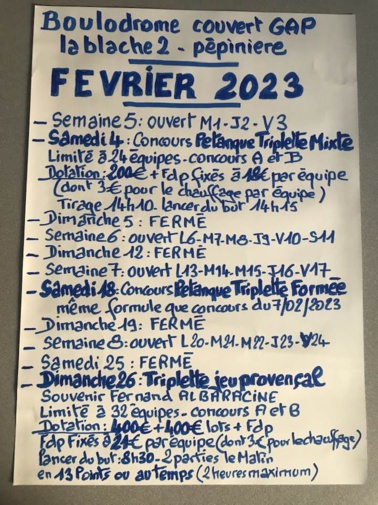 Boulodrome couvert GAP
la blache 2 - pēpiniere
FEVRIER 2023
- Semaine 5 : ouvert M1 - J2 - V3
- Samedi 4 : Concours Petanque Triplette Mixte
Limité à 24 équipes - concours A et B
Dotation : 200€ + Fdp fixés à 18€ par équipe
(dont 3€ pour le chauffage par équipe)
Tirage 14h10. lancer du but 14h15
- Dimanche 5 : FERMĒ
- Semaine 6 : ouvert L6 - M7 - M8 - J9 - V10 - S11
- Dimanche 12 : FERMĒ
- Semaine 7 : ouvert L13 - M14 - M15 - J16 - V17
- Samedi 18 : Concours Petanque Triplette Formée
même formule que concours du 7/02/2023
- Dimanche 19 : FERMĒ
- Semaine 8 : ouvert L20 - M21 - M22 - J23 - V24
- Samedi 25 : FERMĒ
- Dimanche 26 : Triplette jeu provençal
Souvenir Fernand ALBARACINE
Limité à 32 équipes - concours A et B
Dotation : 400€ + 400€ lots + Fdp
Fdp Fixés à 21€ par équipe (dont 3€ pour le chauffage)
lancer du but : 8h30 - 2 parties le Matin
en 13 Points ou au temps (2 heures maximum)